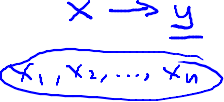 x → y
x₁, x₂, ..., xₙ